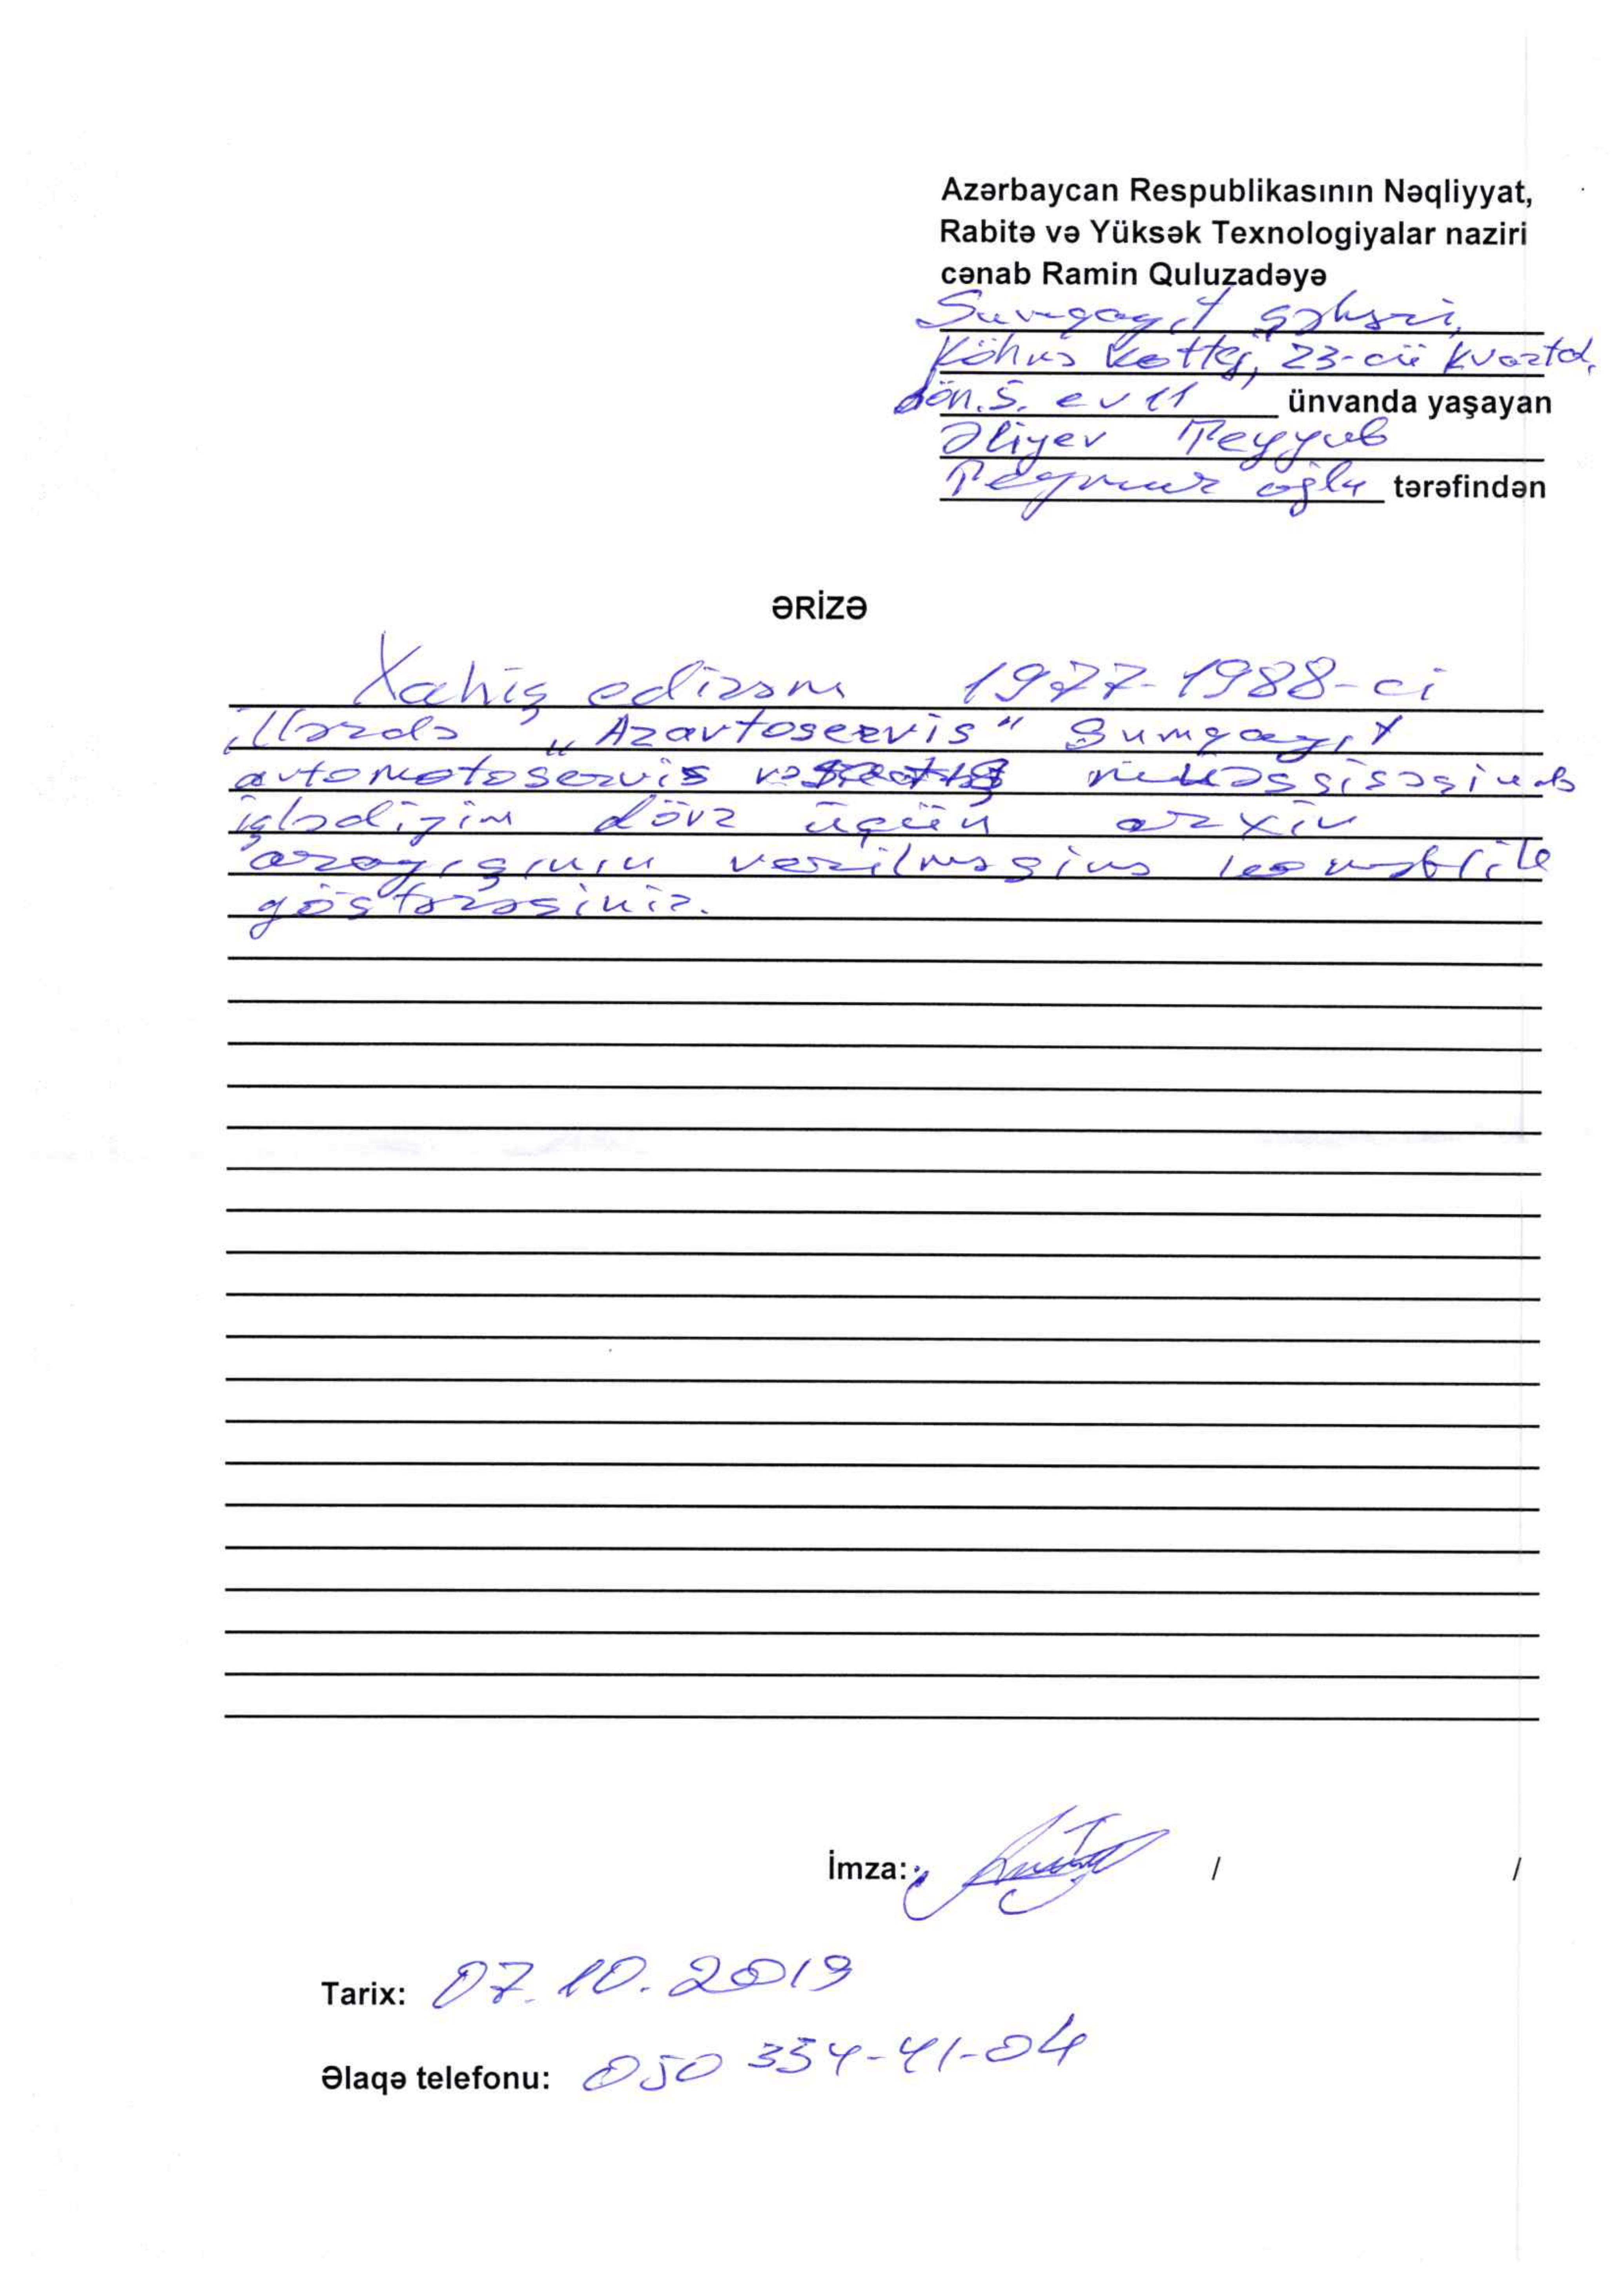 Azərbaycan Respublikasının Nəqliyyat,
Rabitə və Yüksək Texnologiyalar naziri
cənab Ramin Quluzadəyə
Sumqayıt şəhəri,
Köhnə Kottej, 23-cü kvartal,
dön. 5. ev 11 ünvanda yaşayan
Əliyev Teyyub
Teymur oğlu tərəfindən
ƏRİZƏ
Xahiş edirəm 1977-1988-ci
illərdə „Azavtoservis" Sumqayıt
avtomotoservis müəssisəsində
işlədiyim dövr üçün arxiv
arayışının verilməsinə köməklik
göstərəsiniz.
İmza: / /
Tarix: 07.10.2019
Əlaqə telefonu: 050 334-41-04